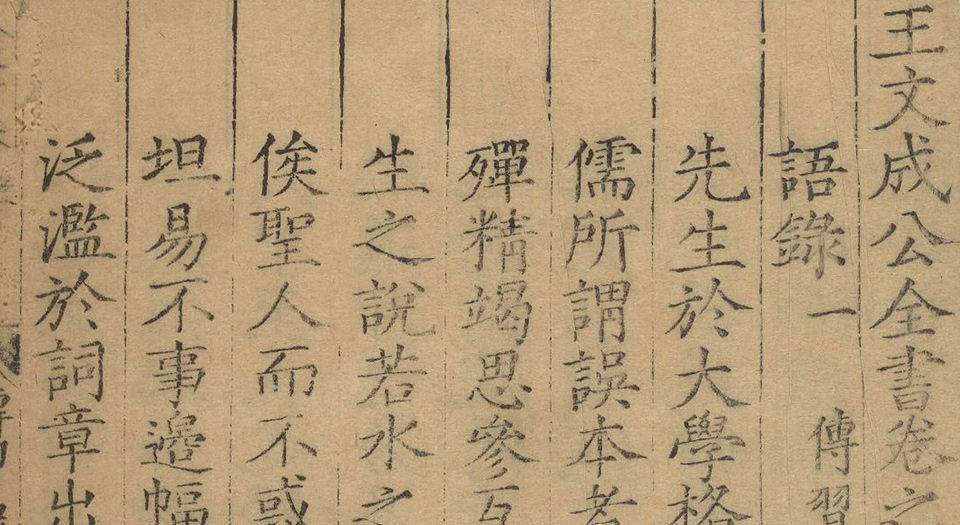 王文成公全書卷之
語錄一 傳習
先生於大學格
儒所謂誤本者
殫精竭思參互
生之說若水之
俟聖人而不惑
坦易不事邊幅
泛濫於詞章出